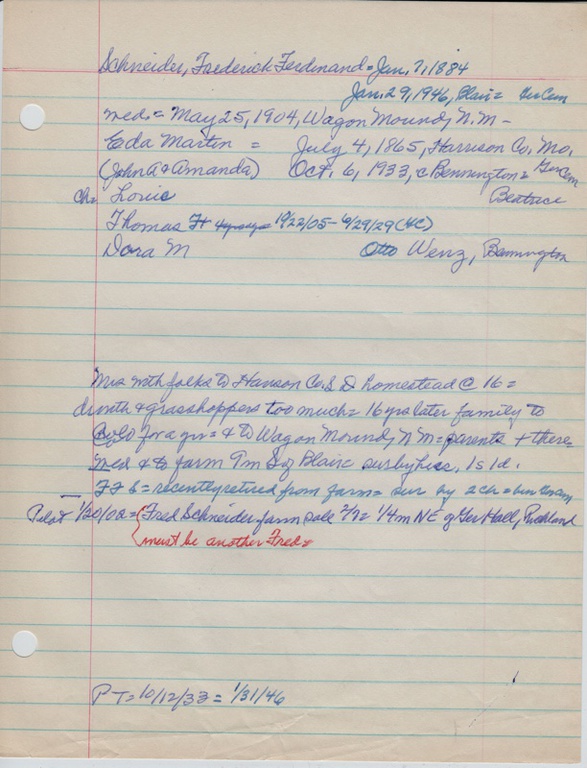 Schneider, Frederick Ferdinand = Jan. 7, 1884
Jan. 29, 1946, Blair = GerCem
med. = May 25, 1904, Wagon Mound, N.M -
Eda Martin = July 4, 1865, Harrison Co. Mo.
(John A & Amanda) Oct. 6, 1933, c Bennington = GerCem
ch = Louie Beatrice
Thomas 1/22/05 - 6/29/29 (HC)
Dora M Otto Wenz, Bennington
Mrs with folks to Hanson Co. S D homestead @ 16 =
drouth & grasshoppers too much = 16 yrs later family to
Colo for a yr = & to Wagon Mound, N M = parents + there
med & to farm 9m S of Blair = sur by hus, 1s 1d.
F F S = recently retired from farm = sur by 2 ch =
Pilot 1/20/02 = {Fred Schneider farm sale 2/7 = 1/4 m NE of Ger Hall, Richland
{must be another Fred =
P T = 10/12/33 = 1/31/46